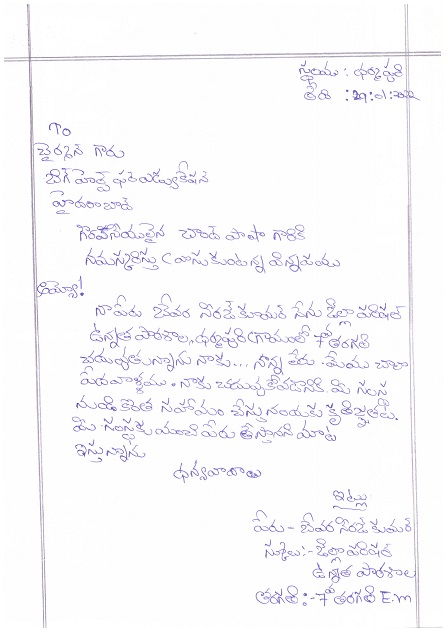 స్థలము : ధర్మపురి
తేది : 29:01:2022
To
చైర్మన్ గారు
బిగ్ హెల్ప్ ఫర్ ఎడ్యుకేషన్
హైదరాబాద్
గౌరవనీయులైన చాంద్ పాషా గారికి
నమస్కరిస్తు వ్రాసుకుంటున్న విన్నపము
అయ్యో!
నా పేరు బేవర నీరజ్ కుమార్ నేను జిల్లా పరిషత్
ఉన్నత పాఠశాల, ధర్మపురి గ్రామంలో 7వ తరగతి
చదువుతున్నాను నాకు... నాన్న లేరు. మేము చాలా
పేదవాళ్ళము. నాకు చదువుకోవడానికి మీ సంస్థ
నుండి కొంత సహాయం చేస్తునందుకు కృతజ్ఞతలు.
మీ సంస్థకు మంచి పేరు తెస్తానని మాట
ఇస్తున్నాను
ధన్యవాదాలు
ఇట్లు
పేరు - బేవర నీరజ్ కుమార్
స్కూలు:- జిల్లా పరిషత్
ఉన్నత పాఠశాల
తరగతి :- 7వ తరగతి E.m